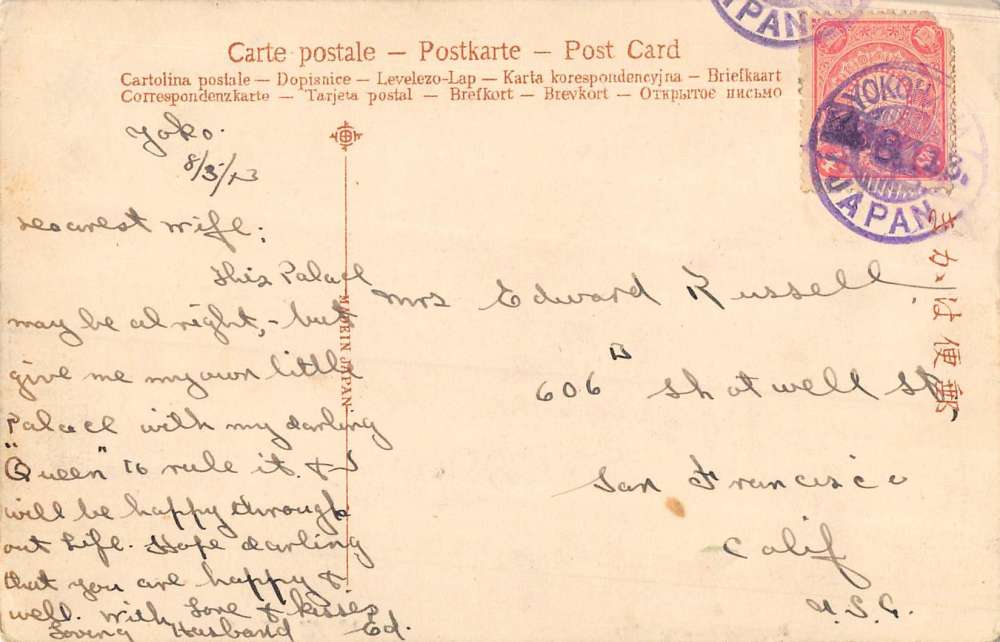 Carte postale — Postkarte — Post Card
Cartolina postale — Dopisnice — Levelezo-Lap — Karta korespondencyjna — Briefkaart
Correspondenzkarte — Tarjeta postal — Brefkort — Brevkort — Открытое письмо
JAPAN
YOKOHAMA
JAPAN
Yoko.
8/3/13
Dearest Wife;
This Palace
may be al right, - but
give me my own little
Palace with my darling
"Queen" to rule it. & I
will be happy through
out Life. Hope darling
that you are happy &
well. With Love & kisses
Loving Husband Ed.
MADE IN JAPAN
Mrs Edward Russell
606 B Shotwell St
San Francisco
Calif
U.S.A.
きかは便郵